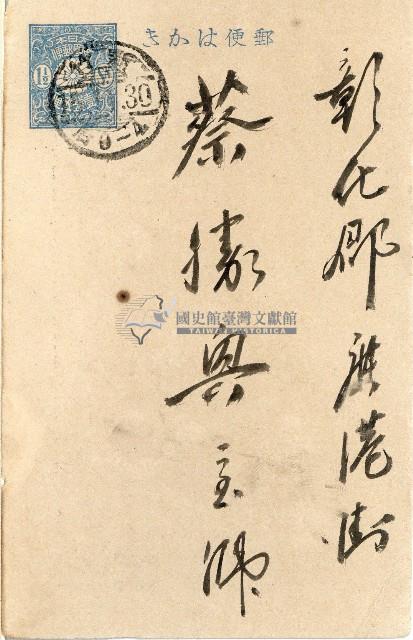 郵便はかき
彰化郡鹿港街
蔡勝興宝号
1½
.30
國史館臺灣文獻館
TAIWAN HISTORICA